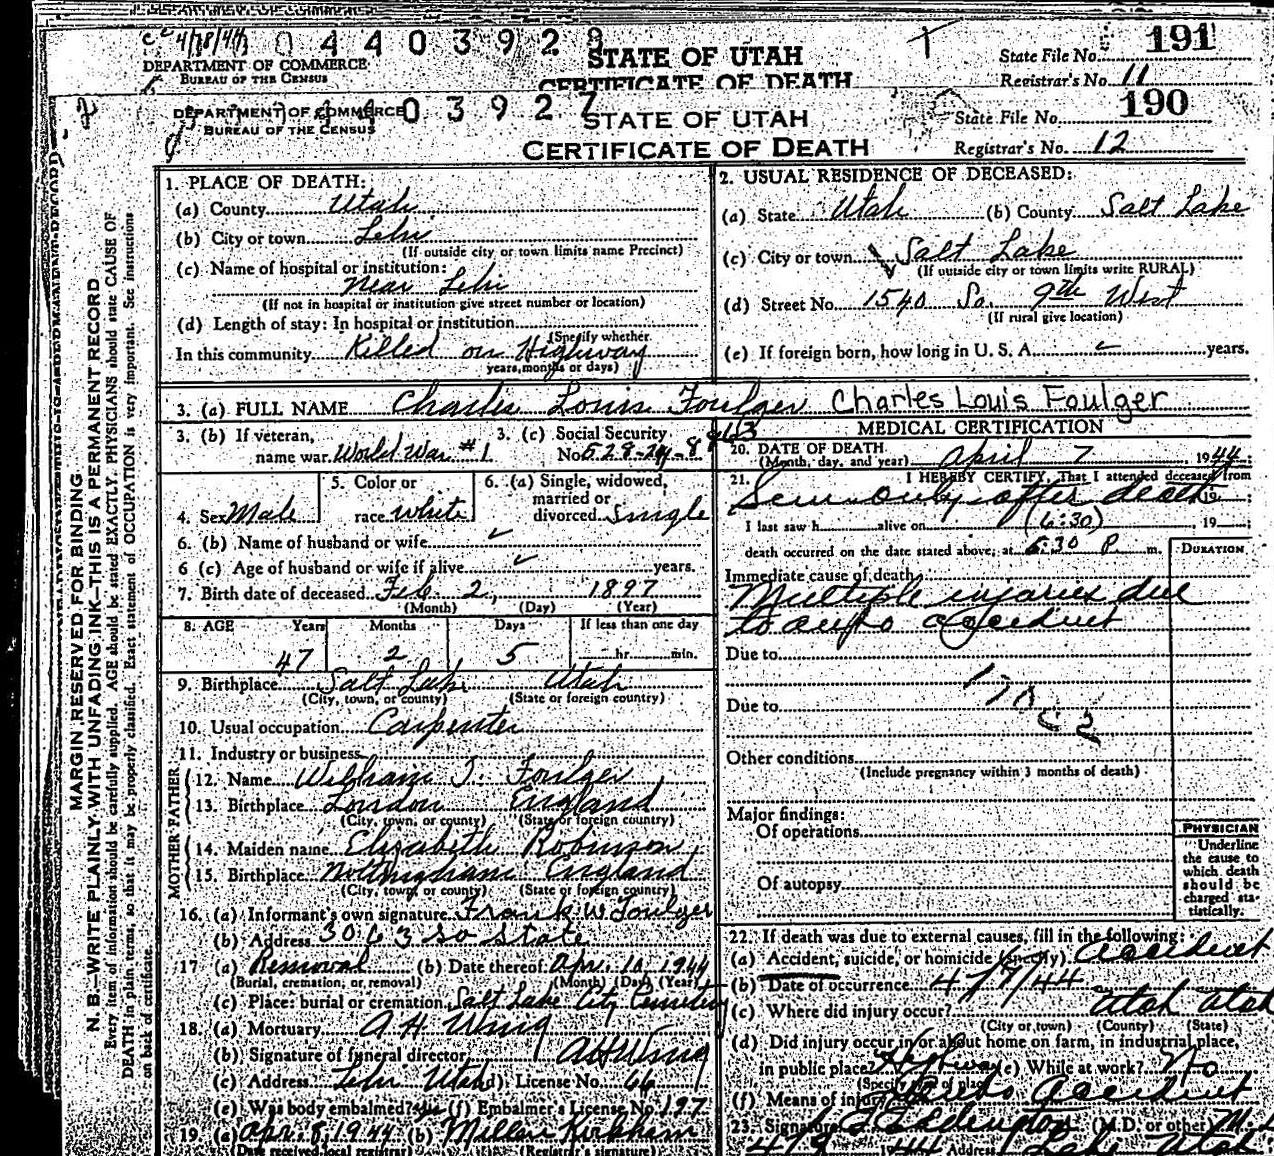 c 4/18/44 0 4 4 0 3 9 2 8
STATE OF UTAH
State File No. 191
DEPARTMENT OF COMMERCE
BUREAU OF THE CENSUS
CERTIFICATE OF DEATH
Registrar's No. 11
DEPARTMENT OF COMMERCE
0 3 9 2 7
BUREAU OF THE CENSUS
STATE OF UTAH
State File No. 190
CERTIFICATE OF DEATH
Registrar's No. 12
MARGIN RESERVED FOR BINDING
N. B.—WRITE PLAINLY, WITH UNFADING INK—THIS IS A PERMANENT RECORD
Every item of information should be carefully supplied. AGE should be stated EXACTLY. PHYSICIANS should state CAUSE OF
DEATH in plain terms, so that it may be properly classified. Exact statement of OCCUPATION is very important. See instructions
on back of certificate.
1. PLACE OF DEATH:
(a) County Utah
(b) City or town Lehi
(If outside city or town limits name Precinct)
(c) Name of hospital or institution:
Near Lehi
(If not in hospital or institution give street number or location)
(d) Length of stay: In hospital or institution
(Specify whether
In this community Killed on Highway
years, months or days)
2. USUAL RESIDENCE OF DECEASED:
(a) State Utah (b) County Salt Lake
(c) City or town Salt Lake
(If outside city or town limits write RURAL)
(d) Street No. 1540 So. 9th West
(If rural give location)
(e) If foreign born, how long in U. S. A. years.
3. (a) FULL NAME Charles Louis Foulger Charles Louis Foulger
3. (b) If veteran,
name war World War #1
3. (c) Social Security
No. 528-24-8863
4. Sex Male
5. Color or
race white
6. (a) Single, widowed,
married or
divorced Single
6. (b) Name of husband or wife
6 (c) Age of husband or wife if alive years.
7. Birth date of deceased Feb. 2, 1897
(Month) (Day) (Year)
8. AGE Years Months Days If less than one day
47 2 5 hr. min.
9. Birthplace Salt Lake Utah
(City, town, or county) (State or foreign country)
10. Usual occupation Carpenter
11. Industry or business
FATHER
12. Name William J. Foulger
13. Birthplace London England
(City, town, or county) (State or foreign country)
MOTHER
14. Maiden name Elizabeth Robinson
15. Birthplace Nottingham England
(City, town, or county) (State or foreign country)
16. (a) Informant's own signature Frank W Foulger
(b) Address 3063 So State
17 (a) Removal (b) Date thereof Apr. 10, 1944
(Burial, cremation, or removal) (Month) (Day) (Year)
(c) Place: burial or cremation Salt Lake City Cemetery
18. (a) Mortuary A H Wing
(b) Signature of funeral director AH Wing
(c) Address Lehi Utah (d) License No. 66
(e) Was body embalmed? yes (f) Embalmer's License No. 197
19. (a) Apr. 8, 1944 (b) Millan Kirkham
(Date received local registrar) (Registrar's signature)
MEDICAL CERTIFICATION
20. DATE OF DEATH
(Month, day, and year) April 7 1944
21. I HEREBY CERTIFY, That I attended deceased from
Seen only after death 19
I last saw h alive on (6:30), 19
death occurred on the date stated above, at 6:30 P m.
DURATION
Immediate cause of death
Multiple injuries due
to auto accident
Due to
170
Due to
C 2
Other conditions
(Include pregnancy within 3 months of death)
Major findings:
Of operations
Of autopsy
PHYSICIAN
Underline
the cause to
which death
should be
charged sta-
tistically.
22. If death was due to external causes, fill in the following:
(a) Accident, suicide, or homicide (specify) Accident
(b) Date of occurrence 4/7/44
(c) Where did injury occur? Utah Utah
(City or town) (County) (State)
(d) Did injury occur in or about home on farm, in industrial place,
in public place? Highway (e) While at work? No
(Specify type of place)
(f) Means of injury Auto Accident
23. Signature Eddington (M.D. or other) M.D.
4/9 1944 Address Utah